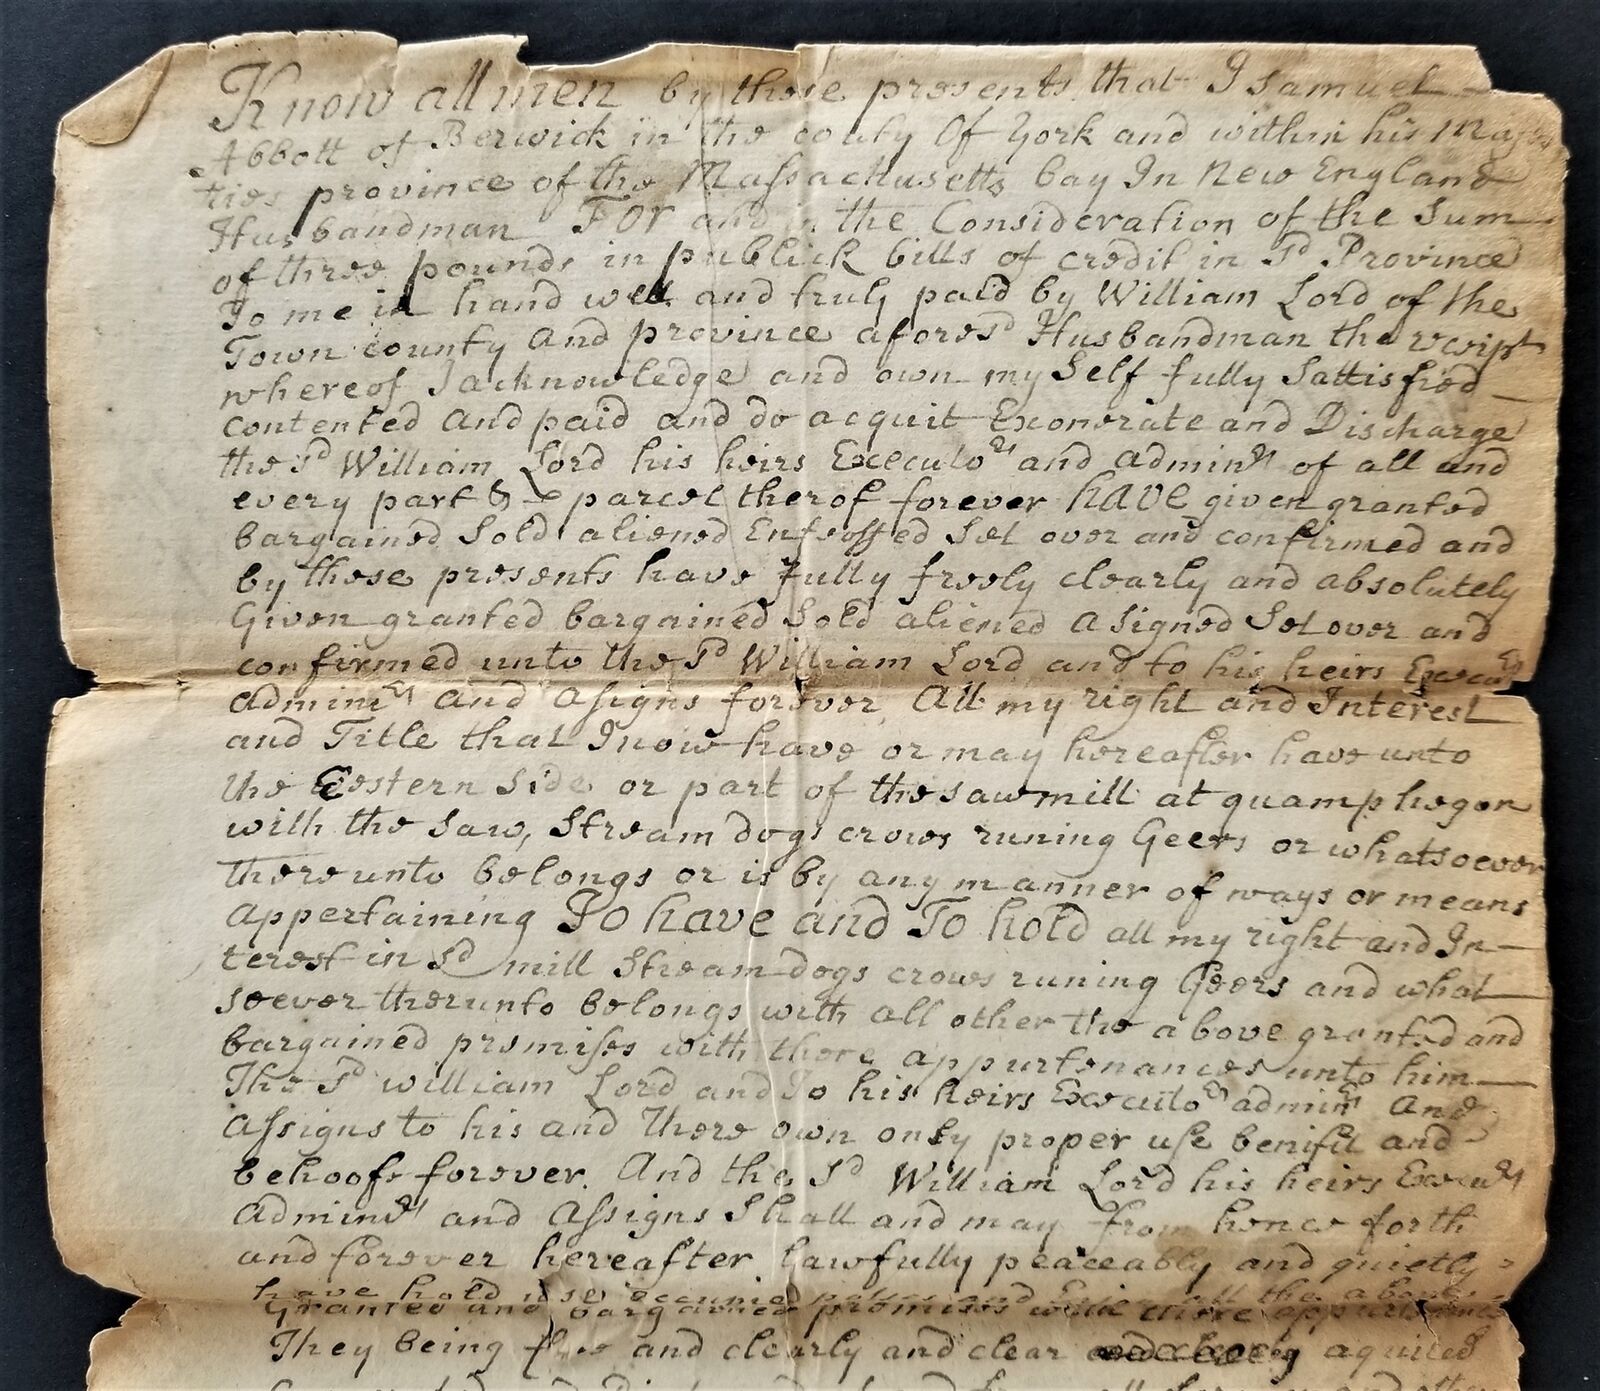 Know all men by these presents that I Samuel
Abbott of Berwick in the couty Of York and within his Majes
ties province of the Massachusetts bay In New England
Husbandman FOr and in the Consideration of the Sum
of three pounds in publick bills of credit in Sd Province
To me in hand well and truly paid by William Lord of the
Town county and province aforesd Husbandman the receipt
whereof I acknowledge and own my Self fully Sattisfied
contented and paid and do acquit Exonerate and Discharge
the Sd William Lord his heirs Executors and adminrs of all and
every part & parcel therof forever have given granted
bargained Sold aliened Enfeoffed Set over and confirmed and
by these presents have fully freely clearly and absolutely
Given granted bargained Sold aliened asigned Set over and
confirmed unto the Sd William Lord and to his heirs Execurs
adminrs and assigns forever All my right and Interest
and Title that I now have or may hereafter have unto
the Eestern Side or part of the sawmill at quamphegon
with the saw, Stream dogs crows runing Geers or whatsoever
thereunto belongs or is by any manner of ways or means
appertaining To have and To hold all my right and In
terest in Sd mill Stream dogs crows runing Geers and what
soever therunto belongs with all other the above granted and
bargained premises with there appurtenances unto him
The Sd william Lord and To his heirs Executors adminrs and
assigns to his and There own only proper use benifit and
behoofe forever. And the Sd William Lord his heirs Execurs
adminrs and assigns Shall and may from hence forth
and forever hereafter lawfully peaceably and quietly
have hold use occupied and all the above
Granted and bargained premises with there appurtenances
They being free and clearly and clear aquited